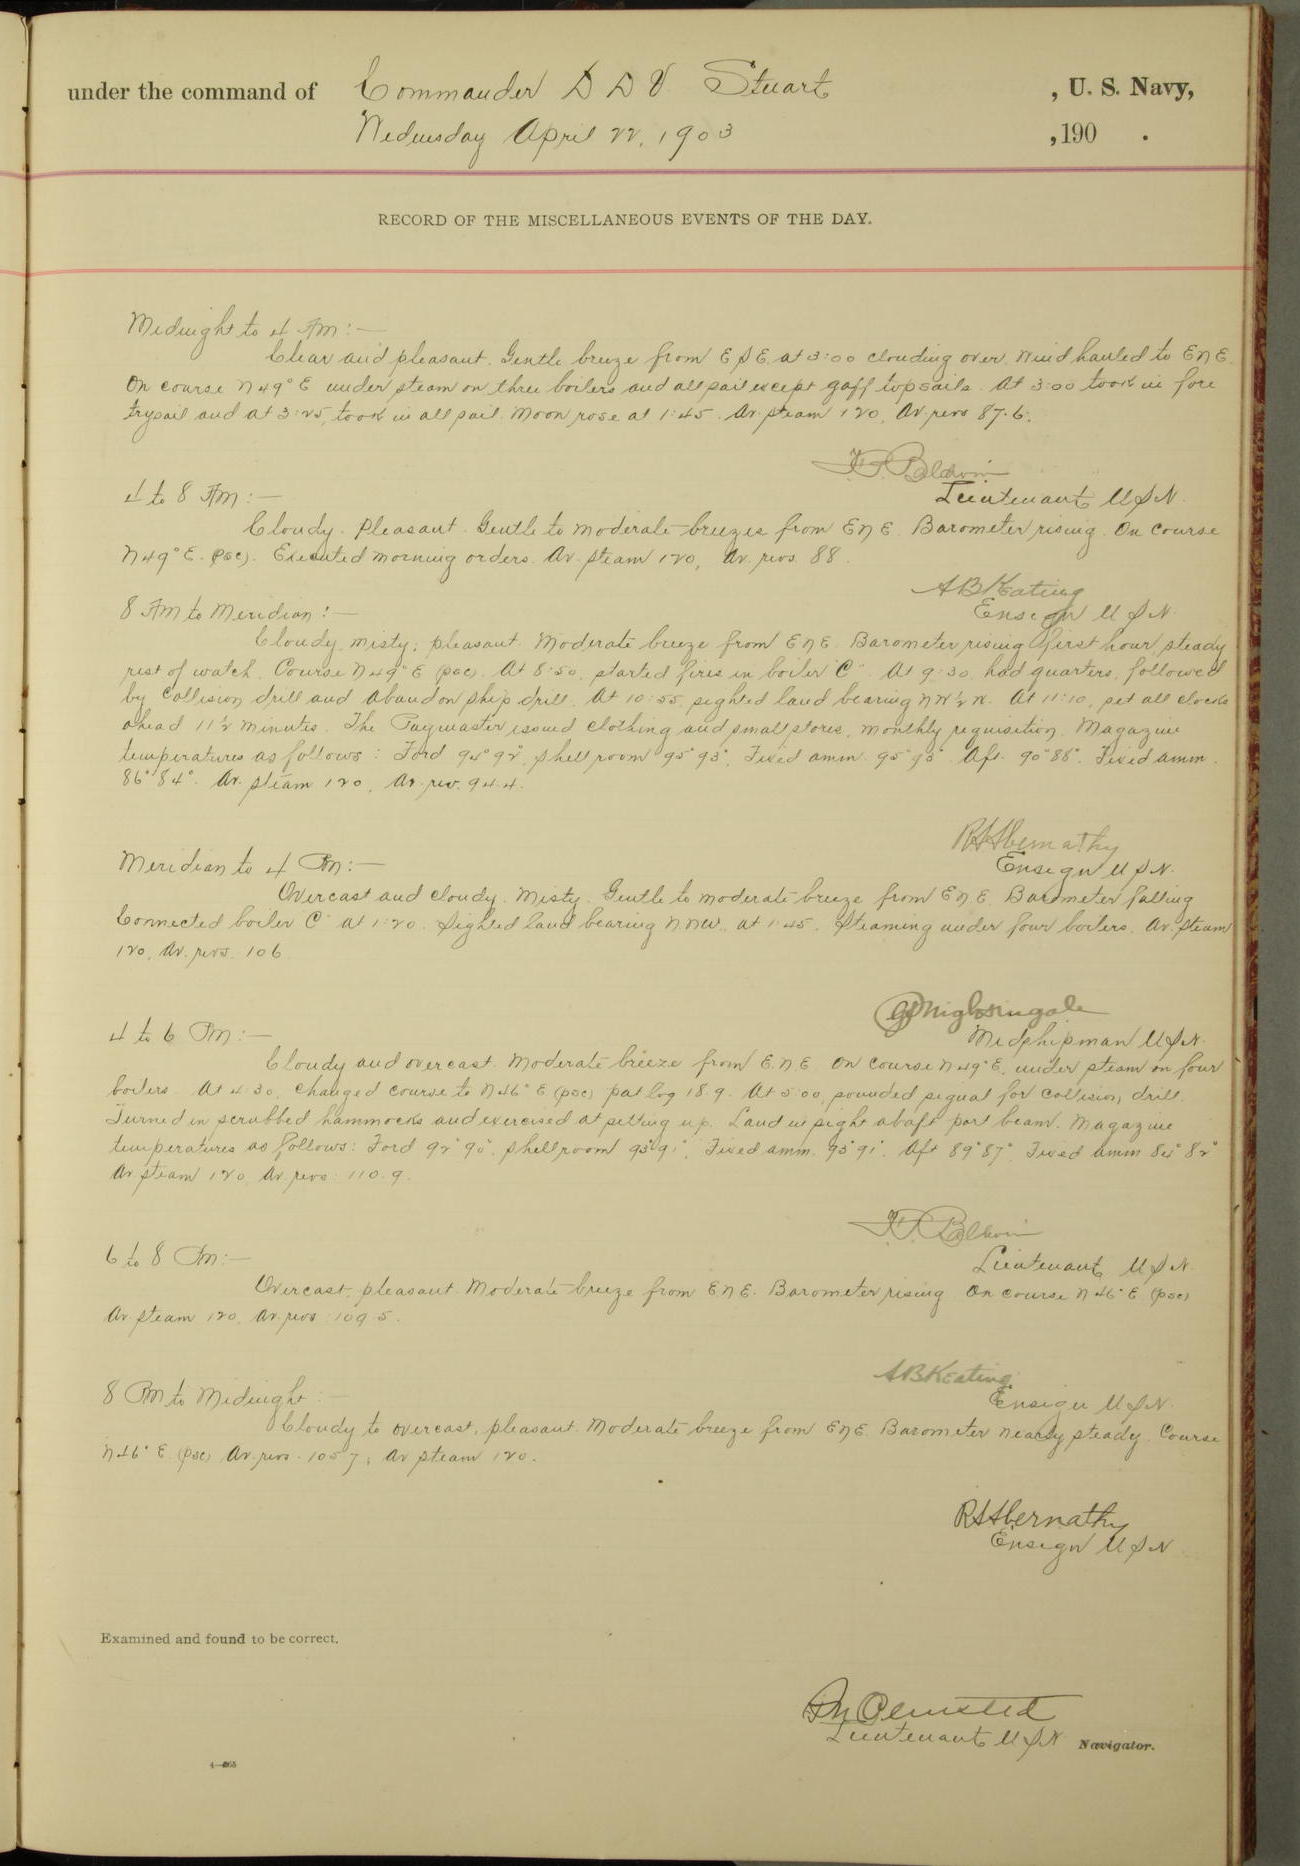 under the command of Commander D D V Stuart , U. S. Navy,
Wednesday April 22, 1903 , 190 .
RECORD OF THE MISCELLANEOUS EVENTS OF THE DAY.
Midnight to 4 AM:—
Clear and pleasant. Gentle breeze from ESE at 3:00 clouding over. Wind hauled to ENE.
On course N 49° E under steam on three boilers and all sail except gaff topsails. At 3:00 took in fore
trysail and at 3:25, took in all sail. Moon rose at 1:45. Av. steam 120, Av. revs 87.6.
Baldwin
Lieutenant U S N.
4 to 8 AM:—
Cloudy. Pleasant. Gentle to moderate breezes from ENE. Barometer rising. On course
N 49° E. (psc). Executed morning orders. Av. steam 120, Av. revs. 88.
A B Keating
Ensign U S N.
8 AM to Meridian:—
Cloudy, misty; pleasant. Moderate breeze from ENE. Barometer rising first hour, steady
rest of watch. Course N 49° E (psc). At 8:50, started fires in boiler "C". At 9:30, had quarters, followed
by Collision drill and Abandon ship drill. At 10:55, sighted land bearing NW ½ N. At 11:10, set all clocks
ahead 11½ minutes. The Paymaster issued clothing and small stores, monthly requisition. Magazine
temperatures as follows: Ford 94° 92°, shell room 95° 93°, Fixed amm. 95° 93°. Aft. 90° 88°. Fixed amm.
86° 84°. Av. steam 120, Av. rev. 94.4.
R H Abernathy
Ensign U S N.
Meridian to 4 PM:—
Overcast and cloudy. Misty. Gentle to moderate breeze from ENE. Barometer falling
Connected boiler "C" at 1:20. Sighted land bearing NNW. at 1:45. Steaming under four boilers. Av. steam
120, Av. revs. 106
Nightingale
Midshipman U S N.
4 to 6 PM:—
Cloudy and overcast. Moderate breeze from E.N.E. On course N 49° E. under steam on four
boilers. At 4:30, changed course to N 46° E (psc) pat log 18.9. At 5:00, sounded signal for collision drill.
Turned in scrubbed hammocks and exercised at setting up. Land in sight abaft port beam. Magazine
temperatures as follows: Ford 92° 90°, shell room 93° 91°, Fixed amm. 93° 91°. Aft 89° 87°. Fixed amm 84° 82°
Av. steam 120, Av. revs. 110.9.
Baldwin
Lieutenant U S N.
6 to 8 PM:—
Overcast, pleasant. Moderate breeze from ENE. Barometer rising. On course N 46° E (psc)
Av. steam 120, Av. revs 109.5.
A B Keating
Ensign U S N.
8 PM to Midnight:—
Cloudy to overcast, pleasant. Moderate breeze from ENE. Barometer nearly steady. Course
N 46° E (psc) Av. revs. 105.7; Av steam 120.
R H Abernathy
Ensign U S N
Examined and found to be correct.
Olmsted
Lieutenant U S N Navigator.